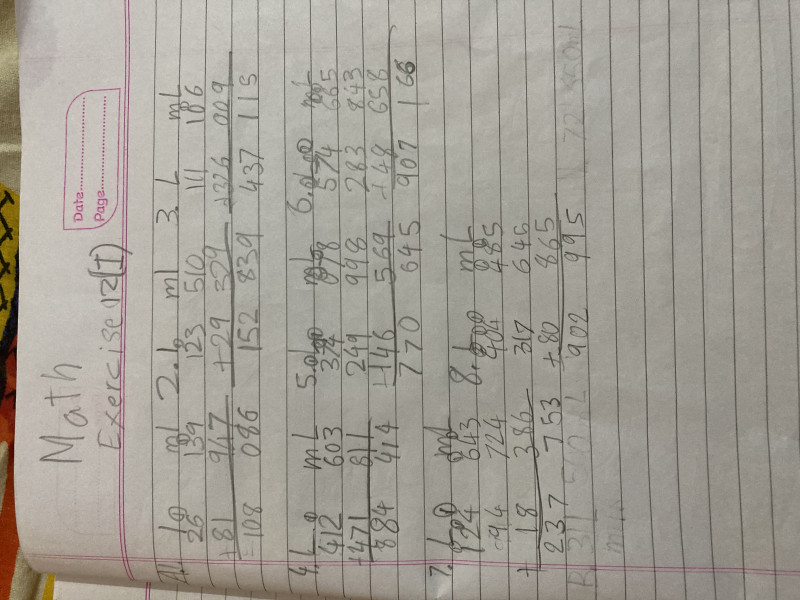 Date
Page
Math
Exercise 12(I)
1. L ml 2. L ml 3. L mL
26 139 123 510 111 106
+81 947 +29 329 +326 009
=108 086 152 839 437 115
4. L mL 5. L mL 6. L mL
412 603 374 078 574 665
+471 811 249 998 283 843
884 414 +146 569 +48 658
770 645 907 166
7. L mL 8. L mL
124 643 485
94 724 317 646
+ 18 386 +80 865
237 753 902 995